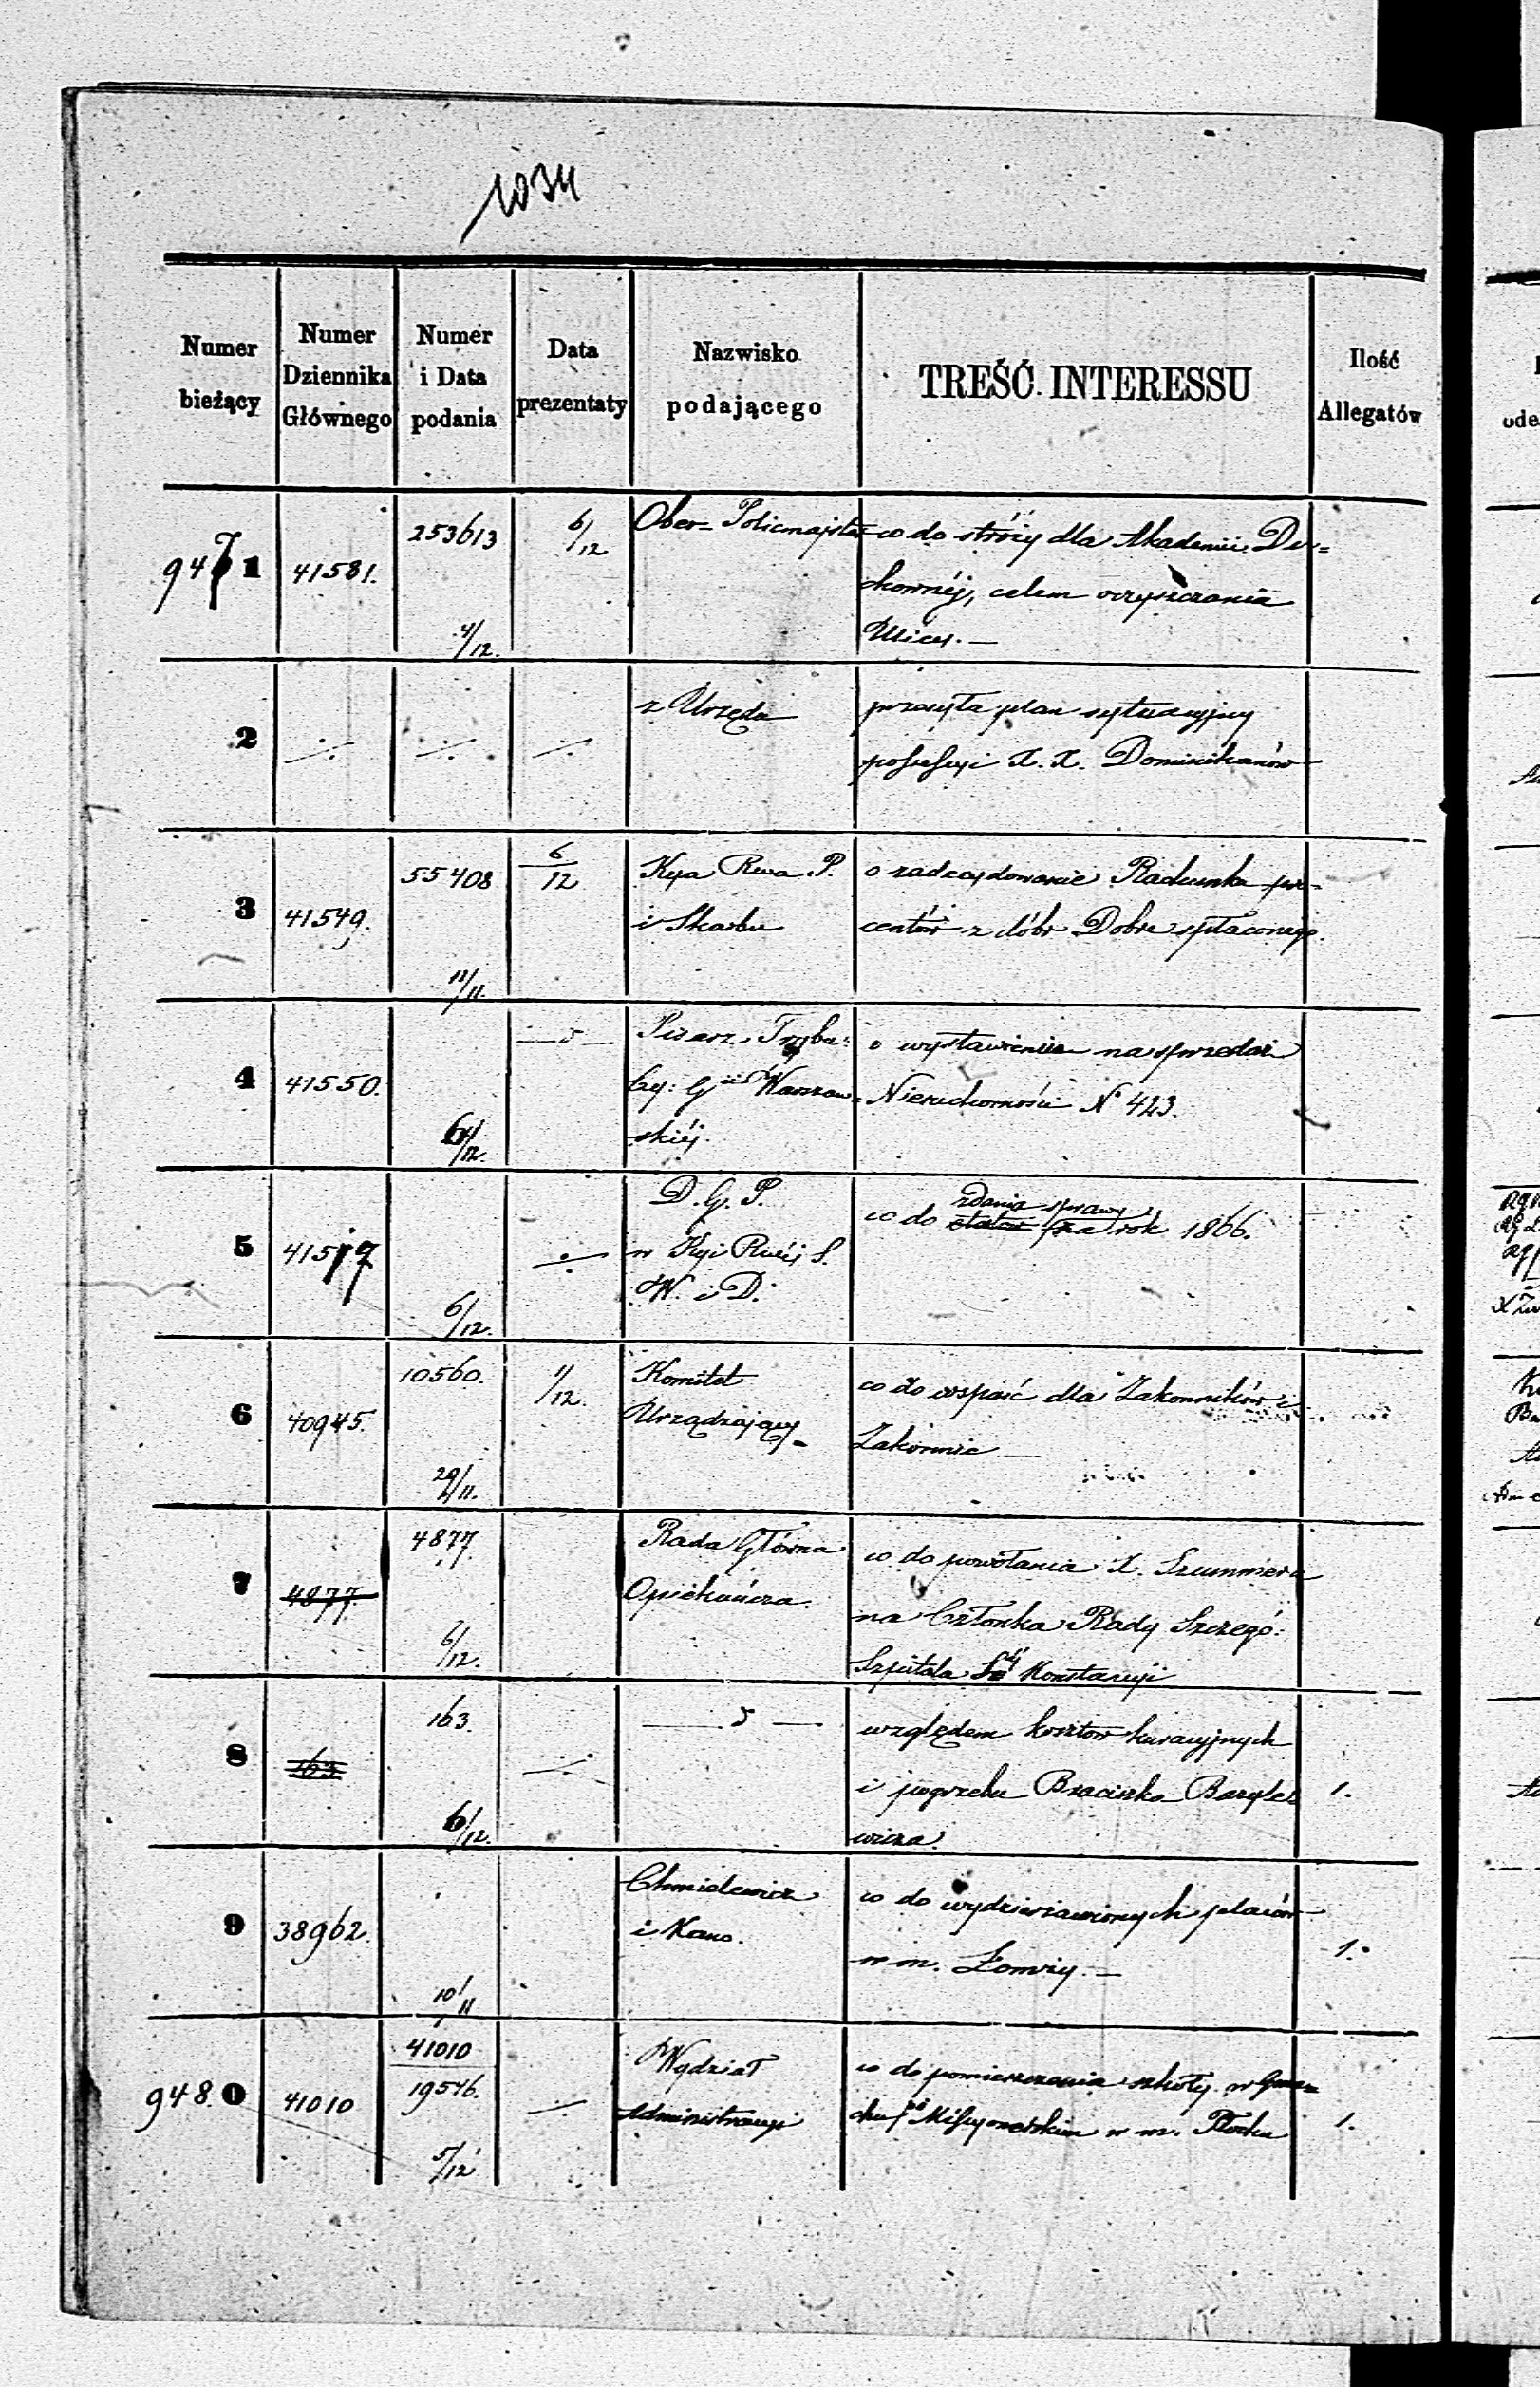 1034
Numer bieżący
Numer Dziennika Głównego
Numer i Data podania
Data prezentaty
Nazwisko podającego
TREŚĆ INTERESSU
Ilość Allegatów
9471 41581. 253613 4/12. 6/12 Ober-Policmajster co do stróży dla Akademii Du=
chownéj, celem oczyszczania
Ulicy. —
2 z Urzędu przesyła plan sytuacyjny
possessyi X. X. Dominikanów
3 41549. 55408 11/11. 6/12 Kya Rwa P. o zadecydowanie Rachunku pro-
i Skarbu centów z dóbr Dobre spłaconego
4 41550. 6/12. Pisarz Trybu: o wystawieniu na sprzedaż
Cy: Gii Warszaw= Nieruchomości N° 423.
skiéj.
5 41517 6/12. D. G. P. zdania sprawy
w Kyi Rwéj S. co do za rok 1866.
W. i D.
6 40945. 10560. 29/11. 1/12. Komitet co do wsparć dla Zakonników i
Urządzający Zakonnic —
7 4877. 4877. 6/12. Rada Główna co do powołania X. Szummera
Opiekuńcza. na Członka Rady Szczegó:
Szpitala Sej Konstancyi
8 163 163. 6/12. względem kosztów kuracyjnych
i pogrzebu Braciszka Bazyle
wicza. 1.
9 38962. 10/11 Chmielewicz co do wydzierżawionych placów
i Kano. w m. Łomży. — 1.
9480 41010 41010
19546. 5/12 Wydział co do pomieszczenia szkoły w Gma
Administracyi chu po Missyonarskim w m. Płocku 1.